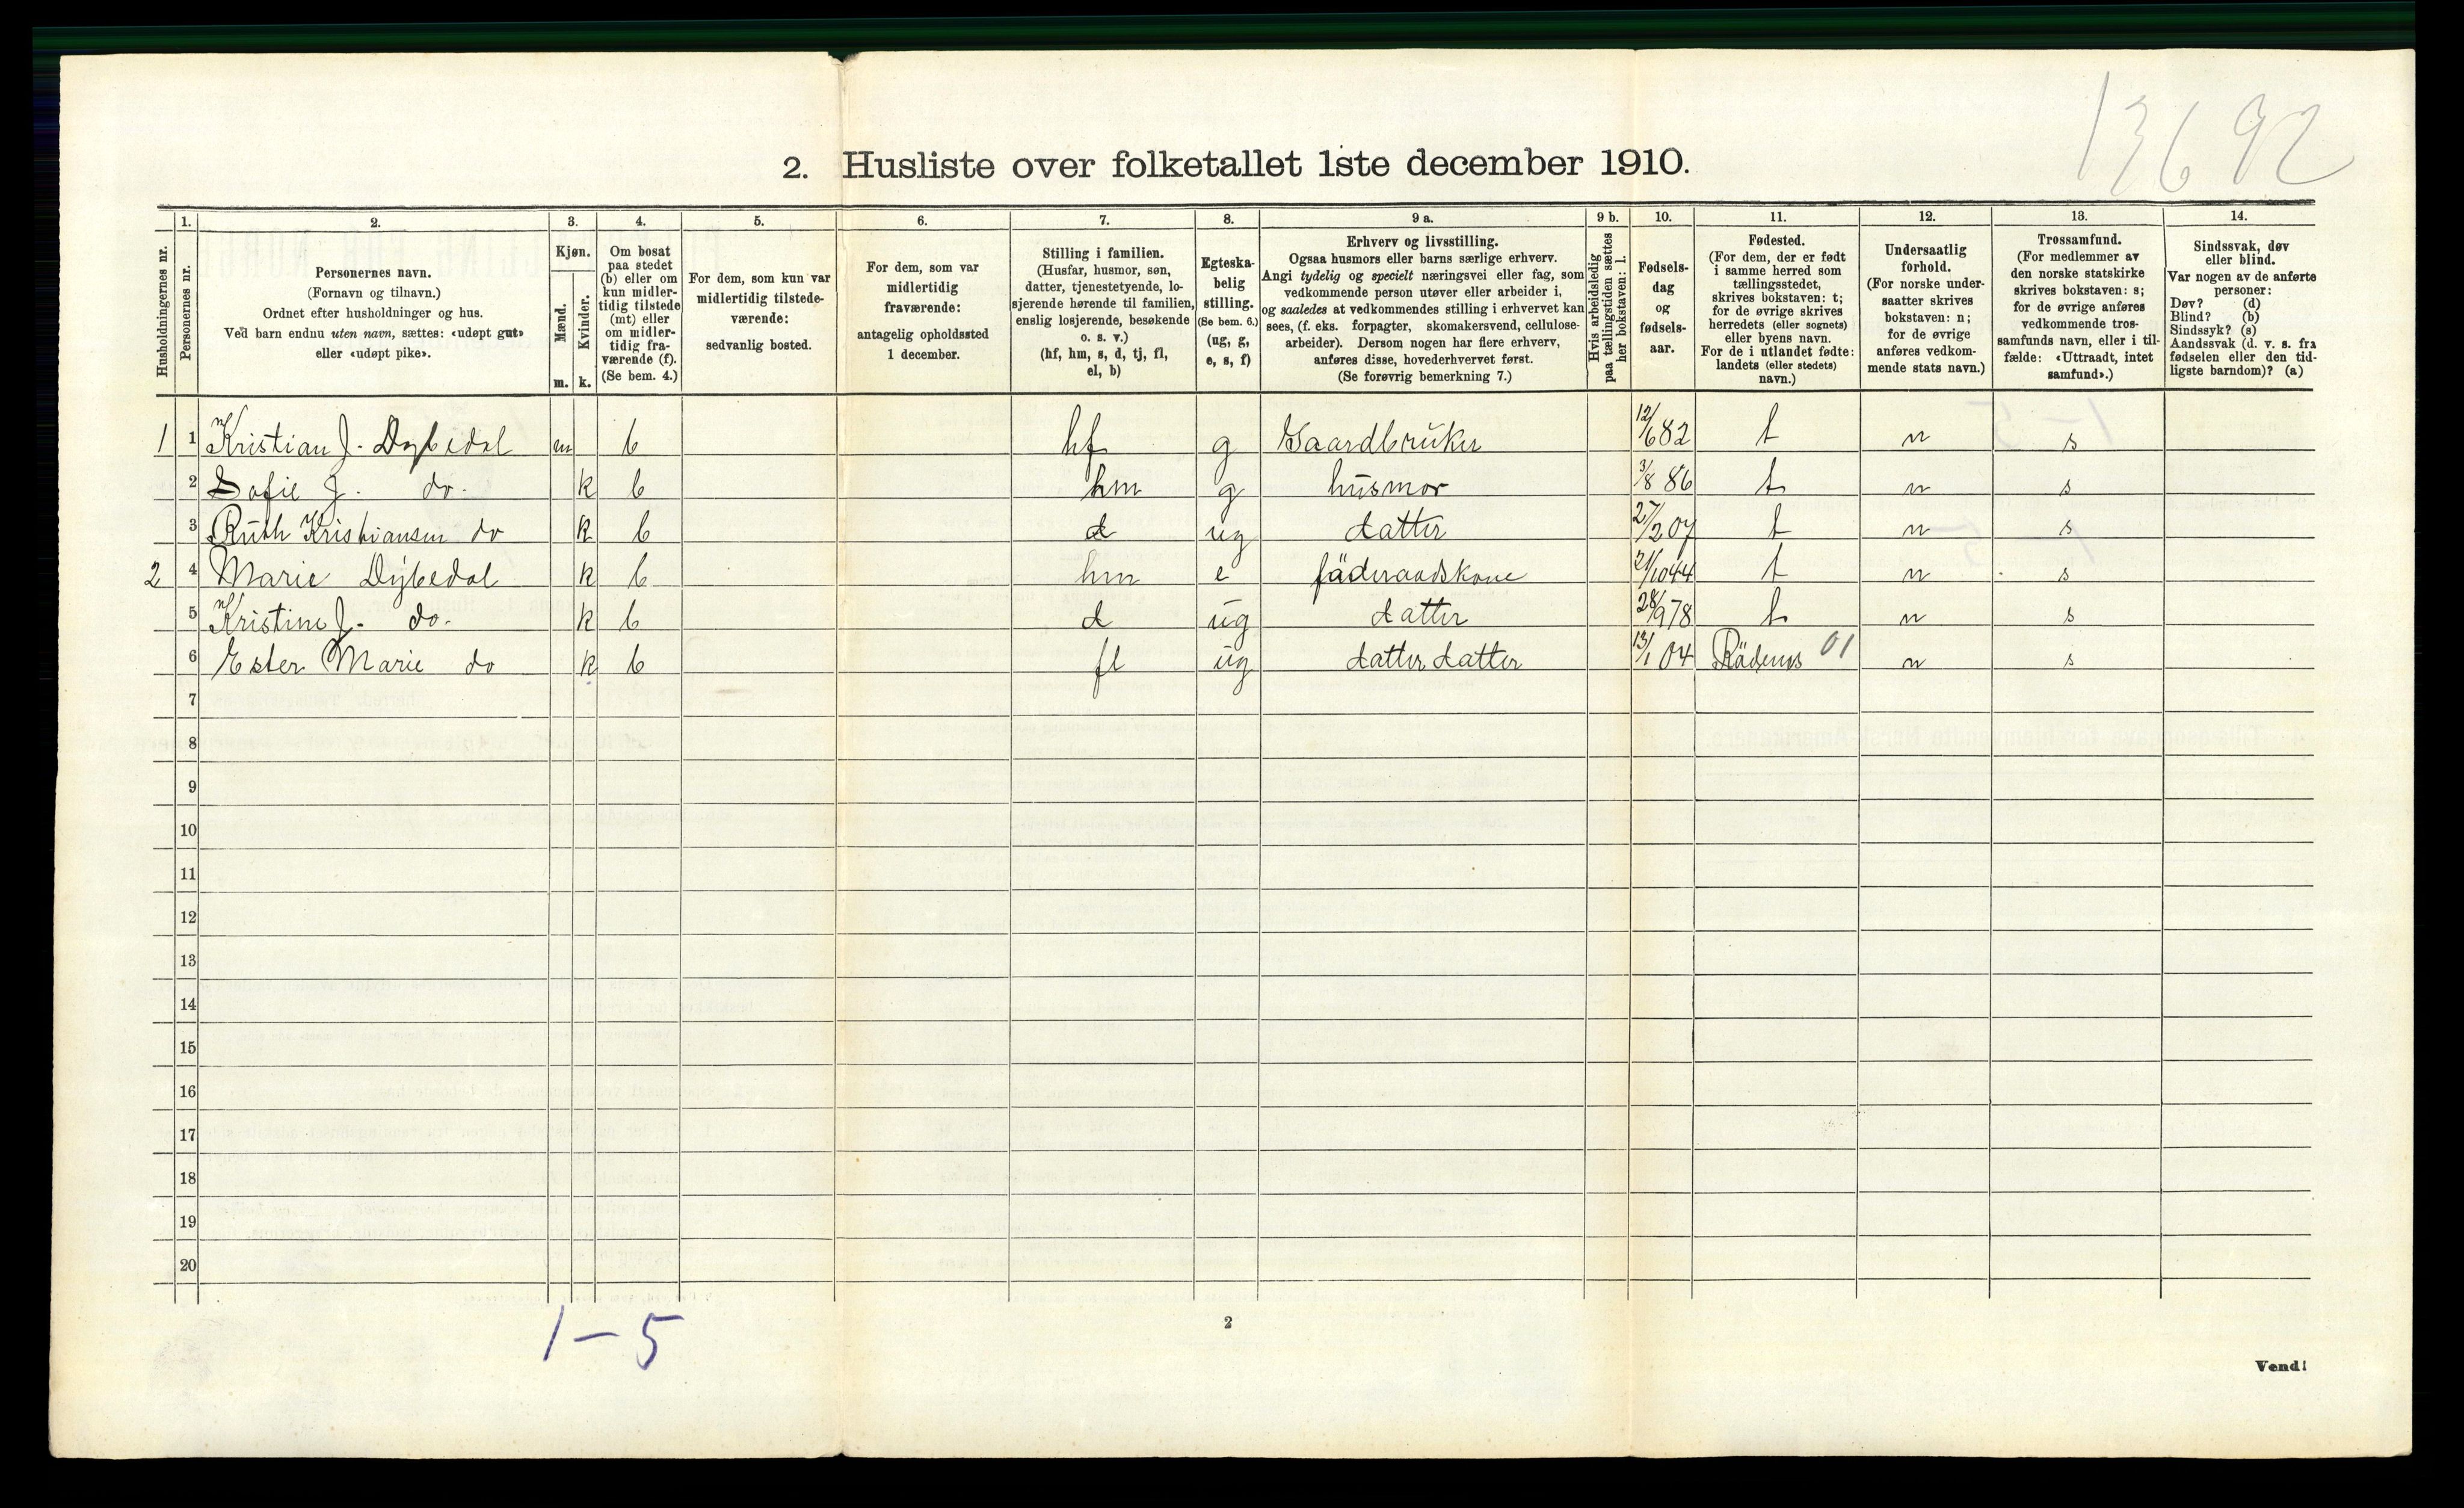 13692
2. Husliste over folketallet 1ste december 1910.
Husholdningernes nr.
1.
Personernes nr.
2.
Personernes navn.
(Fornavn og tilnavn.)
Ordnet efter husholdninger og hus.
Ved barn endnu uten navn, sættes: «udøpt gut»
eller «udøpt pike».
3.
Kjøn.
Mænd.
Kvinder.
m. k.
4.
Om bosat
paa stedet
(b) eller om
kun midler-
tidig tilstede
(mt) eller
om midler-
tidig fra-
værende (f).
(Se bem. 4.)
5.
For dem, som kun var
midlertidig tilstede-
værende:
sedvanlig bosted.
6.
For dem, som var
midlertidig
fraværende:
antagelig opholdssted
1 december.
7.
Stilling i familien.
(Husfar, husmor, søn,
datter, tjenestetyende, lo-
sjerende hørende til familien,
enslig losjerende, besøkende
o. s. v.)
(hf, hm, s, d, tj, fl,
el, b)
8.
Egteska-
belig
stilling.
(Se bem. 6.)
(ug, g,
e, s, f)
9 a.
Erhverv og livsstilling.
Ogsaa husmors eller barns særlige erhverv.
Angi tydelig og specielt næringsvei eller fag, som
vedkommende person utøver eller arbeider i,
og saaledes at vedkommendes stilling i erhvervet kan
sees, (f. eks. forpagter, skomakersvend, cellulose-
arbeider). Dersom nogen har flere erhverv,
anføres disse, hovederhvervet først.
(Se forøvrig bemerkning 7.)
9 b.
Hvis arbeidsledig
paa tællingstiden sættes
her bokstaven: l.
10.
Fødsels-
dag
og
fødsels-
aar.
11.
Fødested.
(For dem, der er født
i samme herred som
tællingsstedet,
skrives bokstaven: t;
for de øvrige skrives
herredets (eller sognets)
eller byens navn.
For de i utlandet fødte:
landets (eller stedets)
navn.)
12.
Undersaatlig
forhold.
(For norske under-
saatter skrives
bokstaven: n;
for de øvrige
anføres vedkom-
mende stats navn.)
13.
Trossamfund.
(For medlemmer av
den norske statskirke
skrives bokstaven: s;
for de øvrige anføres
vedkommende tros-
samfunds navn, eller i til-
fælde: «Uttraadt, intet
samfund».)
14.
Sindssvak, døv
eller blind.
Var nogen av de anførte
personer:
Døv? (d)
Blind? (b)
Sindssyk? (s)
Aandssvak (d. v. s. fra
fødselen eller den tid-
ligste barndom)? (a)
1 1 Kristian J. Dybedal m b hf g Gaardbruker 12/6 82 t n s
2 Sofie J. do. k b hm g husmor 3/8 86 t n s
3 Ruth Kristiansen do k b d ug datter 27/2 07 t n s
2 4 Marie Dybedal k b hm e föderaadskone 21/10 44 t n s
5 Kristine J. do. k b d ug datter 28/9 78 t n s
6 Ester Marie do k b fl ug datter datter 13/1 04 Rödenes 01 n s
7
8
9
10
11
12
13
14
15
16
17
18
19
20
1-5
2
Vend!